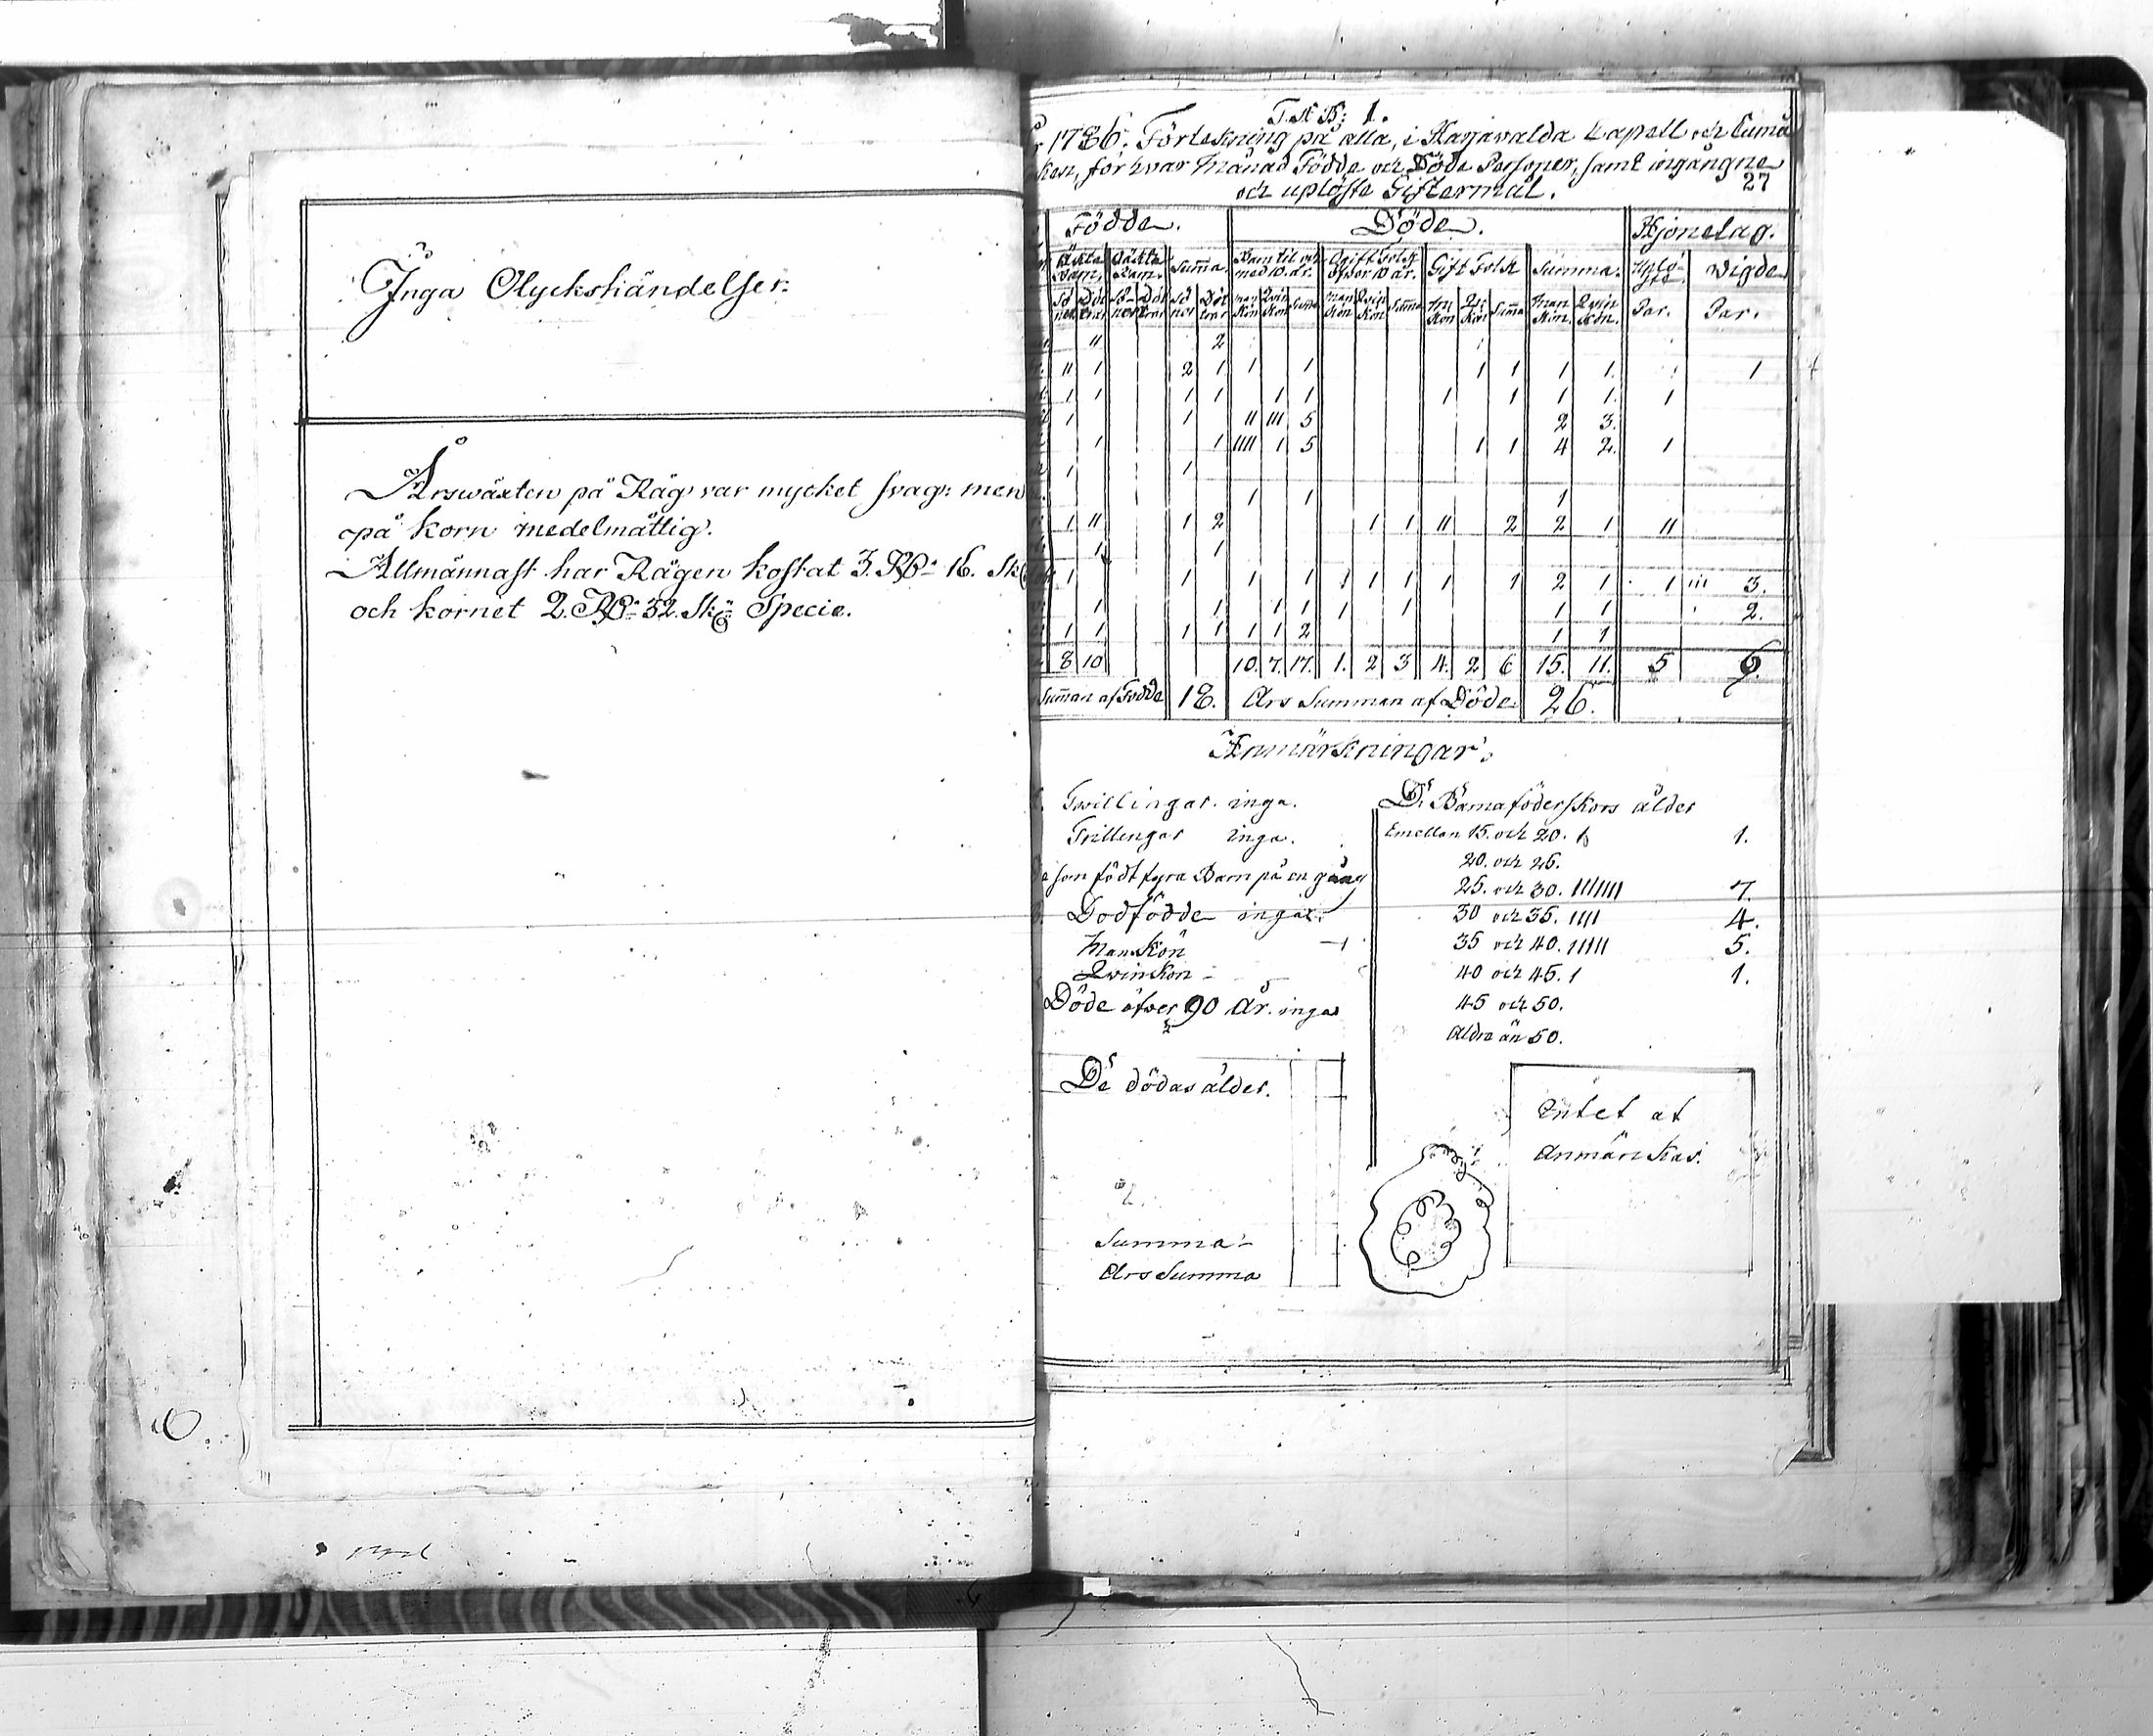 Inga Olyckshändelser:
Årswäxten på Råg var mycket svag: men
på korn medelmåttig.
Allmännast har Rågen kostat 3. R 16. Sk
och kornet 2. R 32. Sk Specie.
T. A B: 1.
1786. Förtekning på alla, i Karjavalda Capell och Cuma
ken, för hvar Månad Födde och Döde Personer, samt ingångne
och uplöste Giftermål. 27
Födde. Döde. Hjonelag.
Äkta Barn. Oäkta Barn. Summa. Barn til och med 10. år. Ogift Folk öfver 10 år. Gift Folk Summa. Uplöste. Vigde.
Söner Döttrar Söner Döttrar Söner Döttrar Mankön Qvinkön Summa Mankön Qvinkön Summa Mankön Qvinkön Summa Mankön. Qvinkön. Par. Par.
11 2
11 1 2 1 1 1 1 1 1 1. 1
1 1 1 1 1 1 1 1 1 1. 1
1 1 11 111 5 2 3.
1 1 1111 1 5 1 1 4 2. 1
1 1
1 1 1
1 11 1 2 1 1 11 2 2 1 11
1 1
1 1 1 1 1 1 1 1 1 2 1 1 111 3.
1 1 1 1 1 1 1 1 2.
1 1 1 1 1 1 2 1 1
8 10 10. 7. 17. 1. 2 3 4. 2 6 15. 11. 5 6.
Summan af Födde 18. Års Summan af Döde 26.
Anmärkningar:
Tvillingar. inga.
Trillingar inga.
som födt fyra Barn på en gång
Dödfödde inga.
Mankön
Qvinkön
Döde öfver 90 år. inga
De dödas ålder.
Summa
Års Summa
De Barnaföderskors ålder
Emellan 15. och 20. 1 1.
20. och 25.
25. och 30. 1111111 7.
30 och 35. 1111 4.
35 och 40. 11111 5.
40 och 45. 1 1.
45 och 50.
Äldre än 50.
Intet at
Anmärkas.